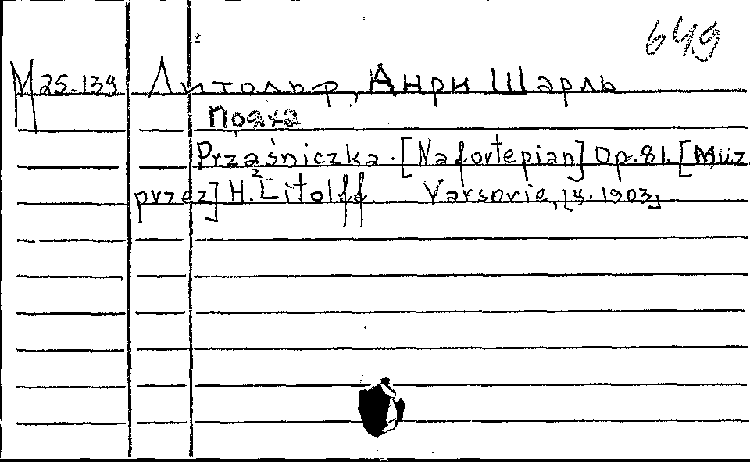 649
М 25.139 Литольф, Анри Шарль
Пряха
Prząśniczka. [Na fortepian] Op. 81. [Muz.
przez] H. Litolff Varsovie, [s. 1903]